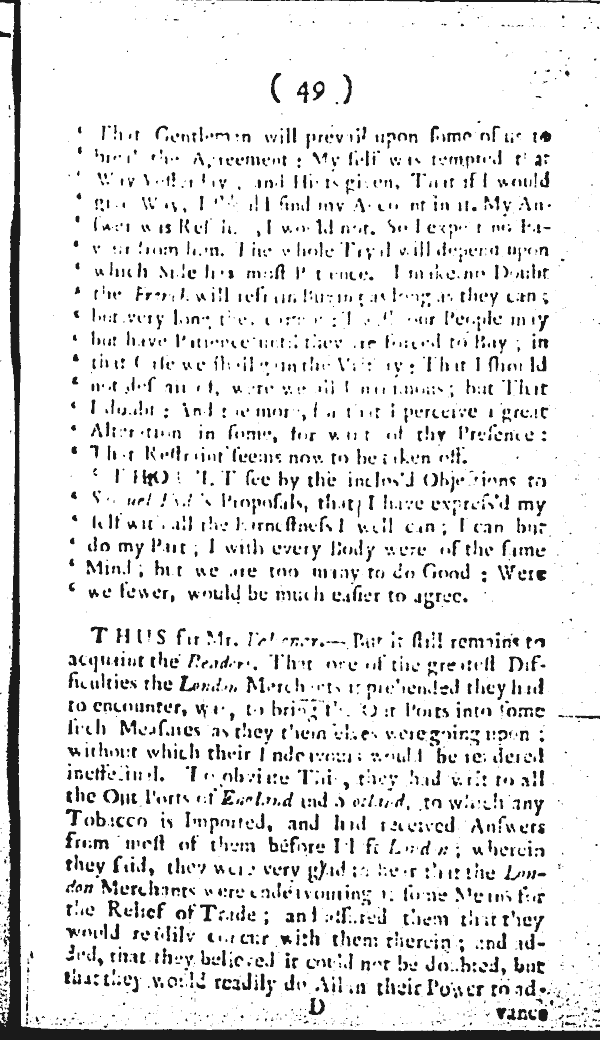 ( 49 )
‘ That Gentleman will prevail upon ſome of us to
‘ break the Agreement ; My ſelf was tempted that
‘ Way Yeſterday , and Hints given, That if I would
‘ give Way, I ſhould find my Account in it. My An-
‘ ſwer was , I would not. So I expect no Fa-
‘ vour from him. The whole Tryal will depend upon
‘ which Side has moſt Patience. I make no Doubt
‘ the French will refrain Buying as long as they can ;
‘ but very long they cannot ; our People may
‘ but have Patience until they are forced to Buy ; in
‘ that Caſe we ſhall gain the Victory : That I ſhould
‘ not deſpair of, were we all Unanimous ; but That
‘ I doubt : And the more, for that I perceive a great
‘ Alteration in ſome, for want of thy Preſence :
‘ That Reſtraint ſeems now to be taken off.
‘ THOU'LT ſee by the inclos'd Objections to
‘ Samuel 's Propoſals, that I have expreſs'd my
‘ ſelf with all the Earneſtneſs I well can ; I can but
‘ do my Part ; I wiſh every Body were of the ſame
‘ Mind ; but we are too many to do Good : Were
‘ we fewer, would be much eaſier to agree.
THUS far Mr. Falconer.— But it ſtill remains to
acquaint the Readers, That one of the greateſt Dif-
ficulties the London Merchants apprehended they had
to encounter, was, to bring the Out Ports into ſome
ſuch Meaſures as they themſelves were going upon ;
without which their Endeavours would be rendered
ineffectual. To obviate This, they had writ to all
the Out Ports of England and Scotland, to which any
Tobacco is Imported, and had received Anſwers
from moſt of them before I left London ; wherein
they ſaid, they were very glad to hear that the Lon-
don Merchants were endeavouring at ſome Means for
the Relief of Trade ; and aſſured them that they
would readily concur with them therein ; and ad-
ded, that they believed it could not be doubted, but
that they would readily do All in their Power to ad-
D vance